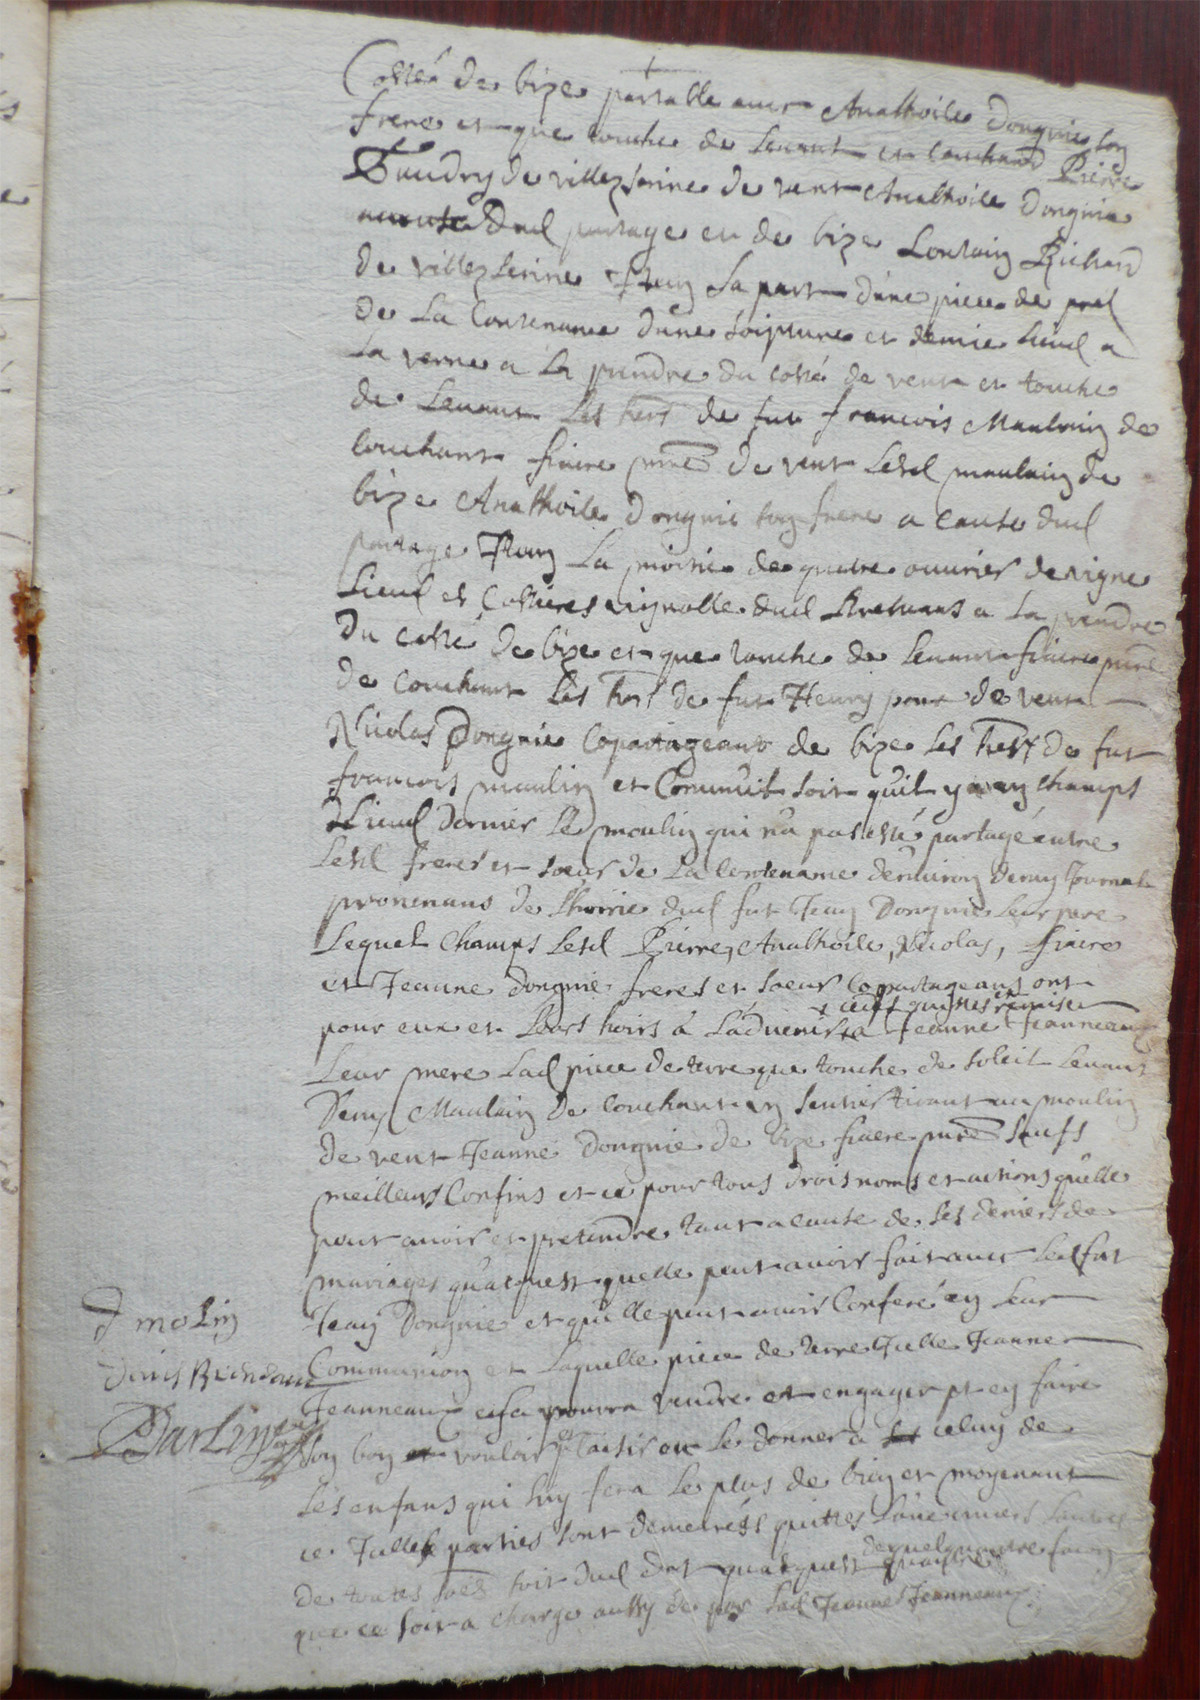 Costé de bize partable avec Anathoile Dongnie son
frere et que touche de Levant et Couchand Pierre
Baudry de villezserine de vent Anathoile Dongnie
a cause dud partage et de bize Lontain Richard
de villezserine Item la part dune piece de prel
de La Contenance dune soipture et demie Lieud a
La verne a La prendre du costé de vent et touche
de Levant Les hers de fut francois Maulain de
Couchant finere mre de vent Lesd maulain de
bize Anathoile Dongnie son frere a cause dud
partage Item La moitié de quatre ouvrier de vigne
Lieud es Costieres vignolle dud Bretenans a La prendre
Du costé de bize et que touche de Levant finere mre
de Couchant Les hers de fut Henry pour de vent
Nicolas Dongnie Copartageant de bize Les hers de fut
francois maulin et Comme il soit quil y a un champs
Lieud dernier Le moulin qui na pas esté partagé entre
Lesd freres et soeur de La Contenance denviron demy Journal
provenans de Lhoirie dud fut Jean Dongnie Leur pere
Lequel Champs Lesd Pierre, Anathoile, Nicolas, finere
et Jeanne Dongnie freres et soeur Copartageans ont
cedes quittes et remise
pour eux et Leurs hoirs a Ladvenir a Jeanne Jeanneaux
Leur mere Lad piece de terre que touche de soleil Levant
Deny Maulain de Couchant un sentier tirant au moulin
de vent Jeanne Dongnie de bize finere mre saufs
meilleurs Confins et ce pour tous drois noms et actions qu'elle
peut avoir et pretendre tant a cause de ses deniers de
mariages qu'acquest quelle peut avoir fait avec Led fut
Jean Dongnie et quelle peut avoir Conferé en Leur
Communion et Laquelle piece de terre Icelle Jeanne
Jeanneaux pourra vendre et engager et en faire
son bon vouloir et plaisir ou Le donner a celuy de
ses enfans qui luy fera Le plus de bien et moyenant
ce Icelles parties sont demeurées quittes Lune envers Lautre
de quelquautre facon
de toutes soit dud dot quacquest
que ce soit a charge aussy de par Lad Jeanne Jeanneaux
D molin
Denis Richard
Barlin